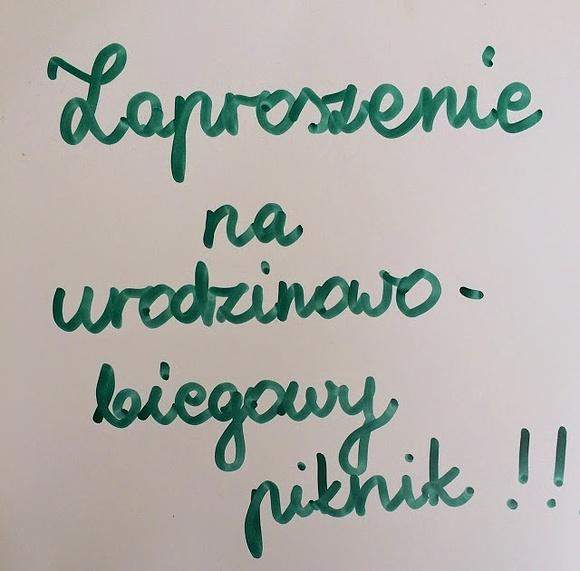 Zaproszenie
na
urodzinowo-
biegowy
piknik!!